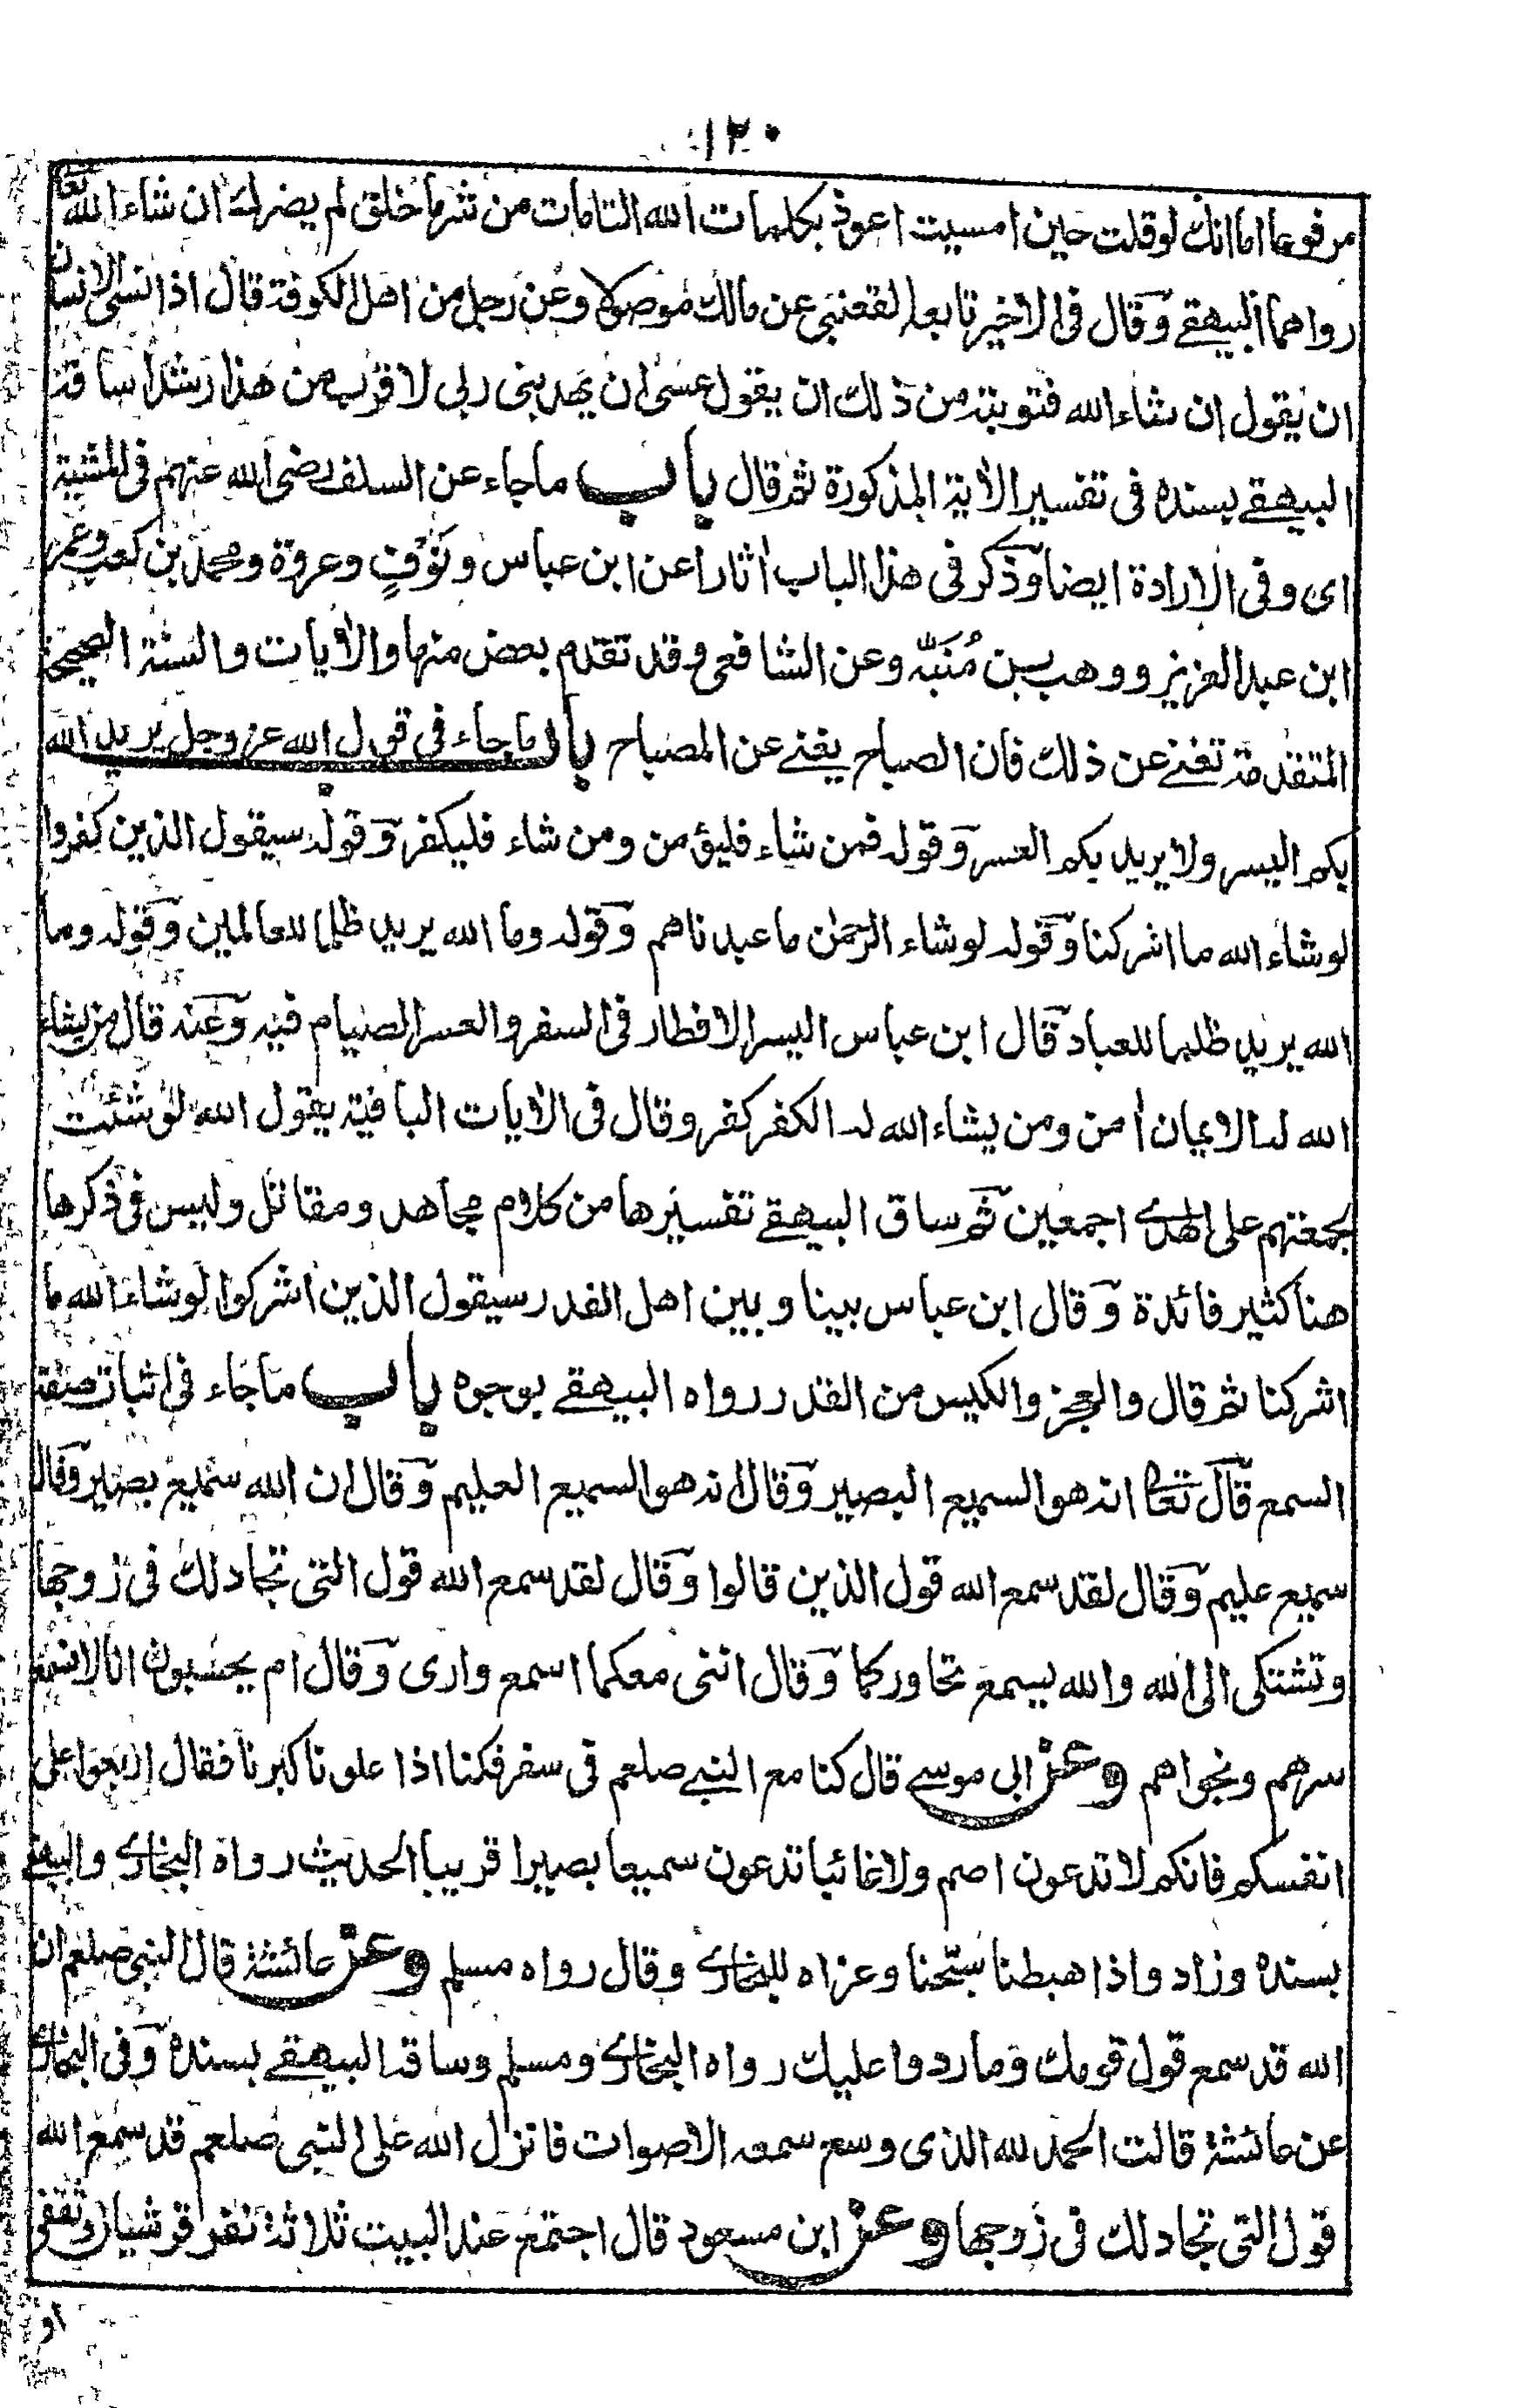 ١٢٠
مرفوعا اما انك لو قلت حين امسيت اعوذ بكلمات الله التامات من شر ما خلق لم يضرك ان شاء الله تعا
رواهما البيهقے وقال فى الاخير تابعه القعنبى عن مالك موصولا وعن رجل من اهل الكوفة قال اذا نسى الانسان
ان يقول ان شاء الله فتوبته من ذلك ان يقول عسى ان يهديني ربى لاقرب من هذا رشدا ساقه
البيهقے بسنده فى تفسير الاية المذكورة ثم قال باب ماجاء عن السلف رضى الله عنهم فى المشية
اى وفى الارادة ايضا وذكر فى هذا الباب اثارا عن ابن عباس ونوف وعروة ومحمد بن كعب وعمر
ابن عبد العزيز ووهب بن مُنَبّه وعن الشافعى وقد تقدم بعض منها والايات والسنة الصحيحة
المتقدمة تغنے عن ذلك فان الصباح يغنے عن المصباح باب ما جاء فى قول الله عز وجل يريد الله
بكم اليسر ولا يريد بكم العسر وقوله فمن شاء فليؤمن ومن شاء فليكفر وقوله سيقول الذين كفروا
لو شاء الله ما اشركنا وقوله لو شاء الرحمن ما عبدناهم وقوله وما الله يريد ظلما للعالمين وقوله وما
الله يريد ظلما للعباد قال ابن عباس اليسر الافطار فى السفر والعسر الصيام فيه وعنه قال من يشاء
الله له الايمان امن ومن يشاء الله له الكفر كفر وقال فى الايات الباقية يقول الله لو شئت
لجمعتهم على الهدى اجمعين ثم ساق البيهقے تفسيرها من كلام مجاهد ومقاتل وليس فى ذكرها
هنا كثير فائدة وقال ابن عباس بيننا وبين اهل القدر سيقول الذين اشركوا لو شاء الله ما
اشركنا ثم قال والعجز والكيس من القدر رواه البيهقے بوجوه باب ما جاء فى اثبات صفة
السمع قال تعا انه هو السميع البصير وقال انه هو السميع العليم وقال ان الله سميع بصير وقال
سميع عليم وقال لقد سمع الله قول الذين قالوا وقال لقد سمع الله قول التى تجادلك فى زوجها
وتشتكى الى الله والله يسمع تحاوركما وقال اننى معكما اسمع وارى وقال ام يحسبون انا لا نسمع
سرهم ونجواهم وعن ابى موسے قال كنا مع النبے صلعم فى سفر فكنا اذا علونا كبرنا فقال اربعوا على
انفسكم فانكم لا تدعون اصم ولا غائبا تدعون سميعا بصيرا قريبا الحديث رواه البخارى والبيهقے
بسنده وزاد واذا هبطنا سبّحنا وعزاه للبخارى وقال رواه مسلم وعن عائشة قال النبى صلعم ان
الله قد سمع قول قومك وما ردوا عليك رواه البخارى ومسلم وساقه البيهقے بسنده وفى البخارى
عن عائشة قالت الحمد لله الذى وسع سمعه الاصوات فانزل الله على النبى صلعم قد سمع الله
قول التى تجادلك فى زوجها وعن ابن مسعود قال اجتمع عند البيت ثلاثة نفر قرشيان وثقفى
او